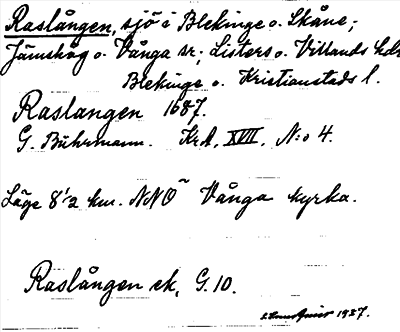 Raslången, sjö i Blekinge o. Skåne;
Jämshög o. Vånga sr; Listers o. Villands hdr
Blekinge o. Kristianstads l.
Raslangen 1687.
G. Buhrmann. KrA, XVII, N:o 4.
Läge 8 1/2 km. NNO Vånga kyrka.
Raslången ek, G. 10.
1937.